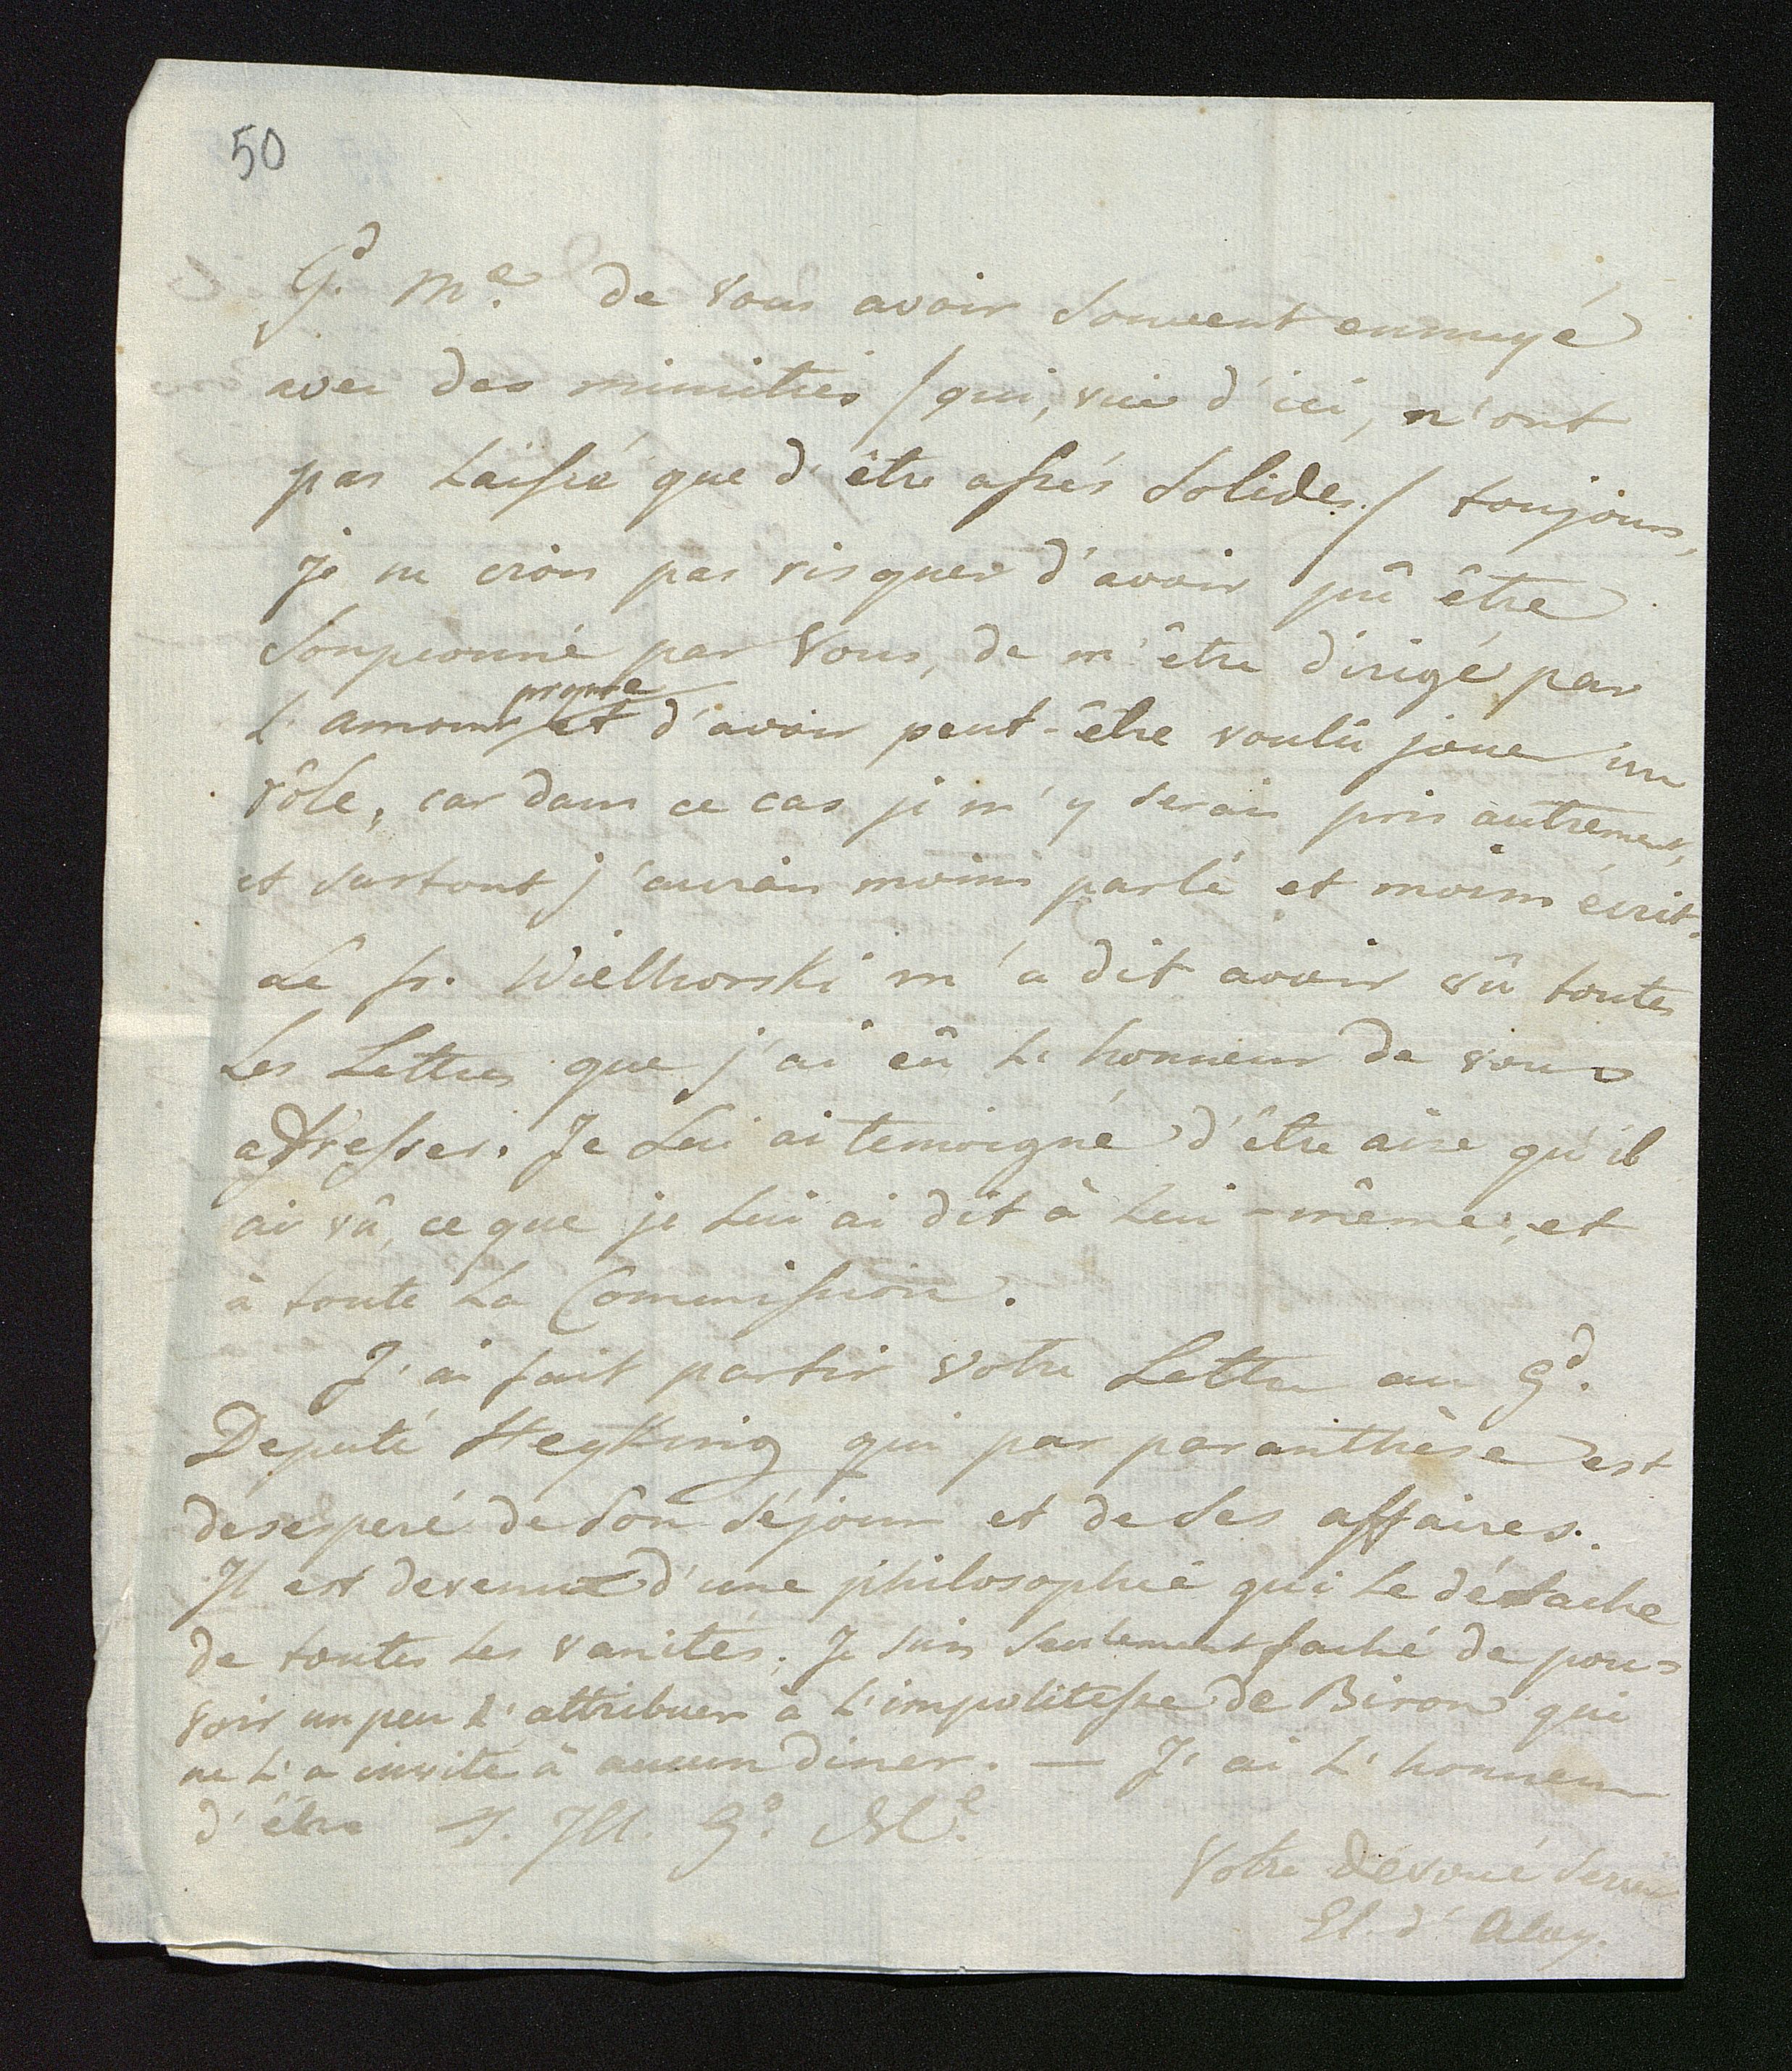 50
Gd. Me. de vous avoir souvent ennuyé
avec des minuties /qui, vue d'ici, n'ont
pas laissé que d'être assés solides./ toujours,
je ne crois pas risquer d'avoir pû être
soupconné par Vous, de m'être dirigé par
L'amour propre et d'avoir peut-être voulû jouer un
rôle, car dans ce cas je m'y serais pris autrement,
et surtout j'aurais moins parlé et moins écrit.
Le fr. Wielhorski m'a dit avoir vû toutes
Les Lettres que j'ai eû L'honneur de vous
adresser. Je Lui ai temoigné d'être aise qu'il
ai vû, ce que je Lui ai dit à Lui-même, et
à toute La Commission.
J'ai fait partir votre Lettre au Gd.
Deputé Heyking qui par paranthèse est
desesperé de son séjour et de ses affaires.
Il est devenu d'une philosophie qui Le détache
de toutes Les vanités. Je suis seulement faché de pou=
voir un peu L'attribuer à L'impolitesse de Biron qui
ne L'a invité à aucun diner. — J'ai L'honneur
d'être T. Ill. Gd. Me.
Votre dévoué serviteur
El. d'Aloy.